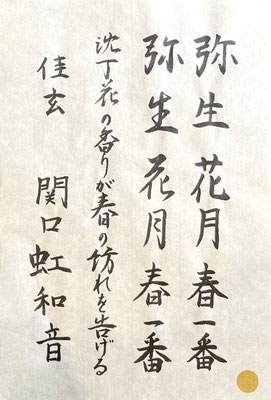 弥生 花月 春一番
弥生 花月 春一番
沈丁花の香りが春の訪れを告げる
佳玄 関口虹和音